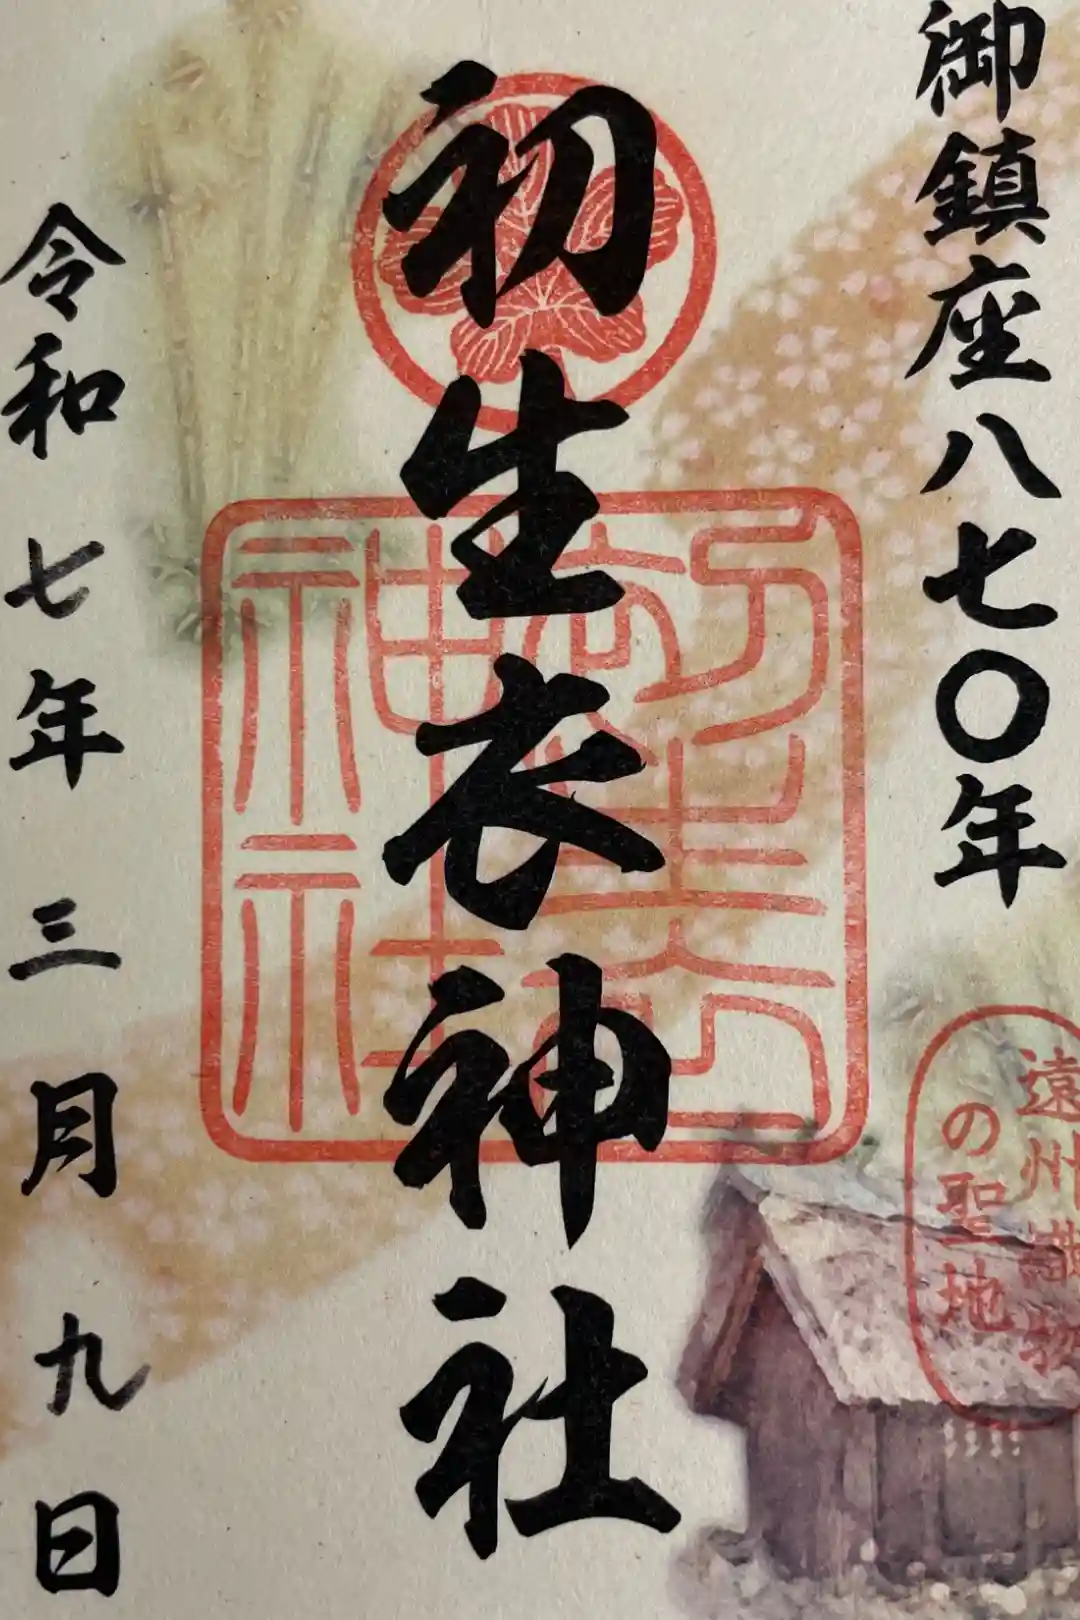 御鎮座八七〇年
初生衣神社
令和七年三月九日
初生衣
神社
遠州織物
の聖地